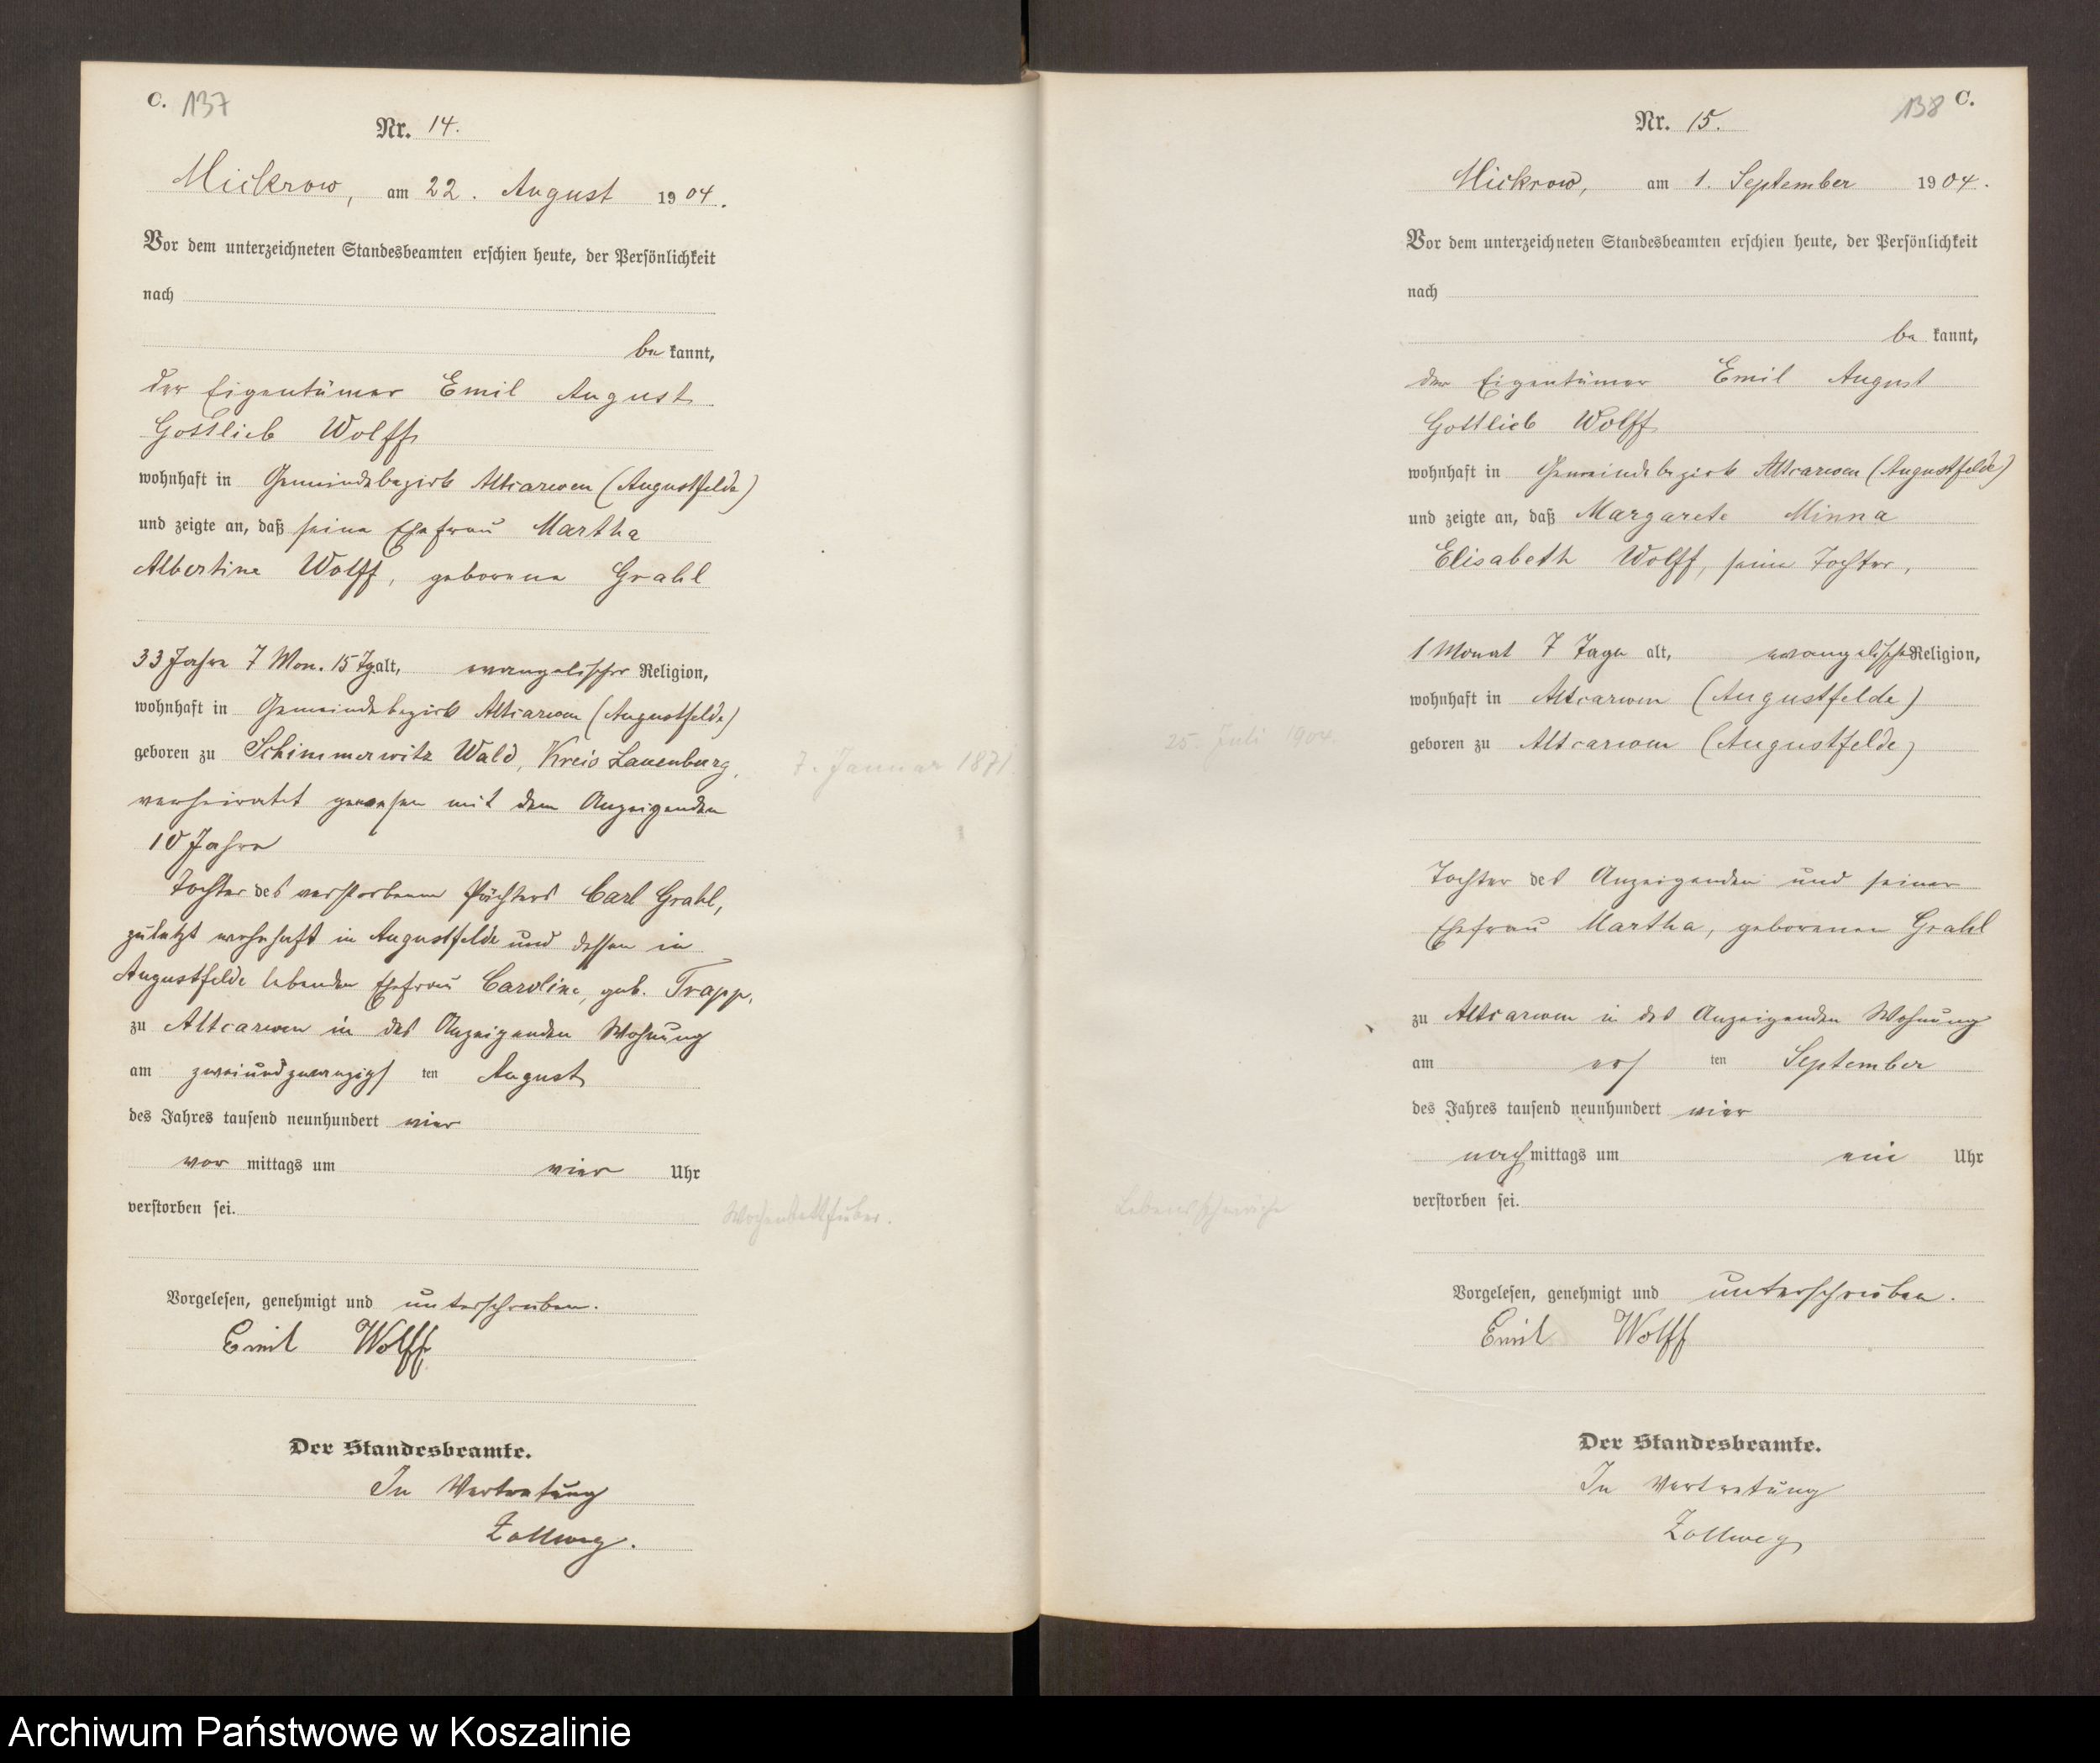 C. 137
Nr. 14.
Mickrow, am 22. August 1904.
Vor dem unterzeichneten Standesbeamten erschien heute, der Persönlichkeit
nach
be kannt,
der Eigentümer Emil August
Gottlieb Wolff
wohnhaft in Gemeindebezirk Altcarwen (Augustfelde)
und zeigte an, daß seine Ehefrau Martha
Albertine Wolff, geborene Grahl
33 Jahre 7 Mon. 15 Tg. alt, evangelischer Religion,
wohnhaft in Gemeindebezirk Altcarwen (Augustfelde)
geboren zu Schimmerwitz Wald, Kreis Lauenburg,
7. Januar 1871.
verheiratet gewesen mit dem Anzeigenden
10 Jahre
Tochter des verstorbenen Pächters Carl Grahl,
zuletzt wohnhaft in Augustfelde und dessen in
Augustfelde lebenden Ehefrau Caroline, geb. Trapp,
zu Altcarwen in des Anzeigenden Wohnung
am zweiundzwanzigs ten August
des Jahres tausend neunhundert vier
vor mittags um vier Uhr
verstorben sei.
Wochenbettfieber.
Vorgelesen, genehmigt und unterschrieben.
Emil Wolff
Der Standesbeamte.
In Vertretung
Zollweg.
138 C.
Nr. 15.
Mickrow, am 1. September 1904.
Vor dem unterzeichneten Standesbeamten erschien heute, der Persönlichkeit
nach
be kannt,
der Eigentümer Emil August
Gottlieb Wolff
wohnhaft in Gemeindebezirk Altcarwen (Augustfelde)
und zeigte an, daß Margarete Minna
Elisabeth Wolff, seine Tochter,
1 Monat 7 Tage alt, evangelischer Religion,
wohnhaft in Altcarwen (Augustfelde)
25. Juli 1904
geboren zu Altcarwen (Augustfelde)
Tochter des Anzeigenden und seiner
Ehefrau Martha, geborenen Grahl
zu Altcarwen in des Anzeigenden Wohnung
am ers ten September
des Jahres tausend neunhundert vier
nach mittags um ein Uhr
verstorben sei.
Lebensschwäche
Vorgelesen, genehmigt und unterschrieben.
Emil Wolff
Der Standesbeamte.
In Vertretung
Zollweg
Archiwum Państwowe w Koszalinie